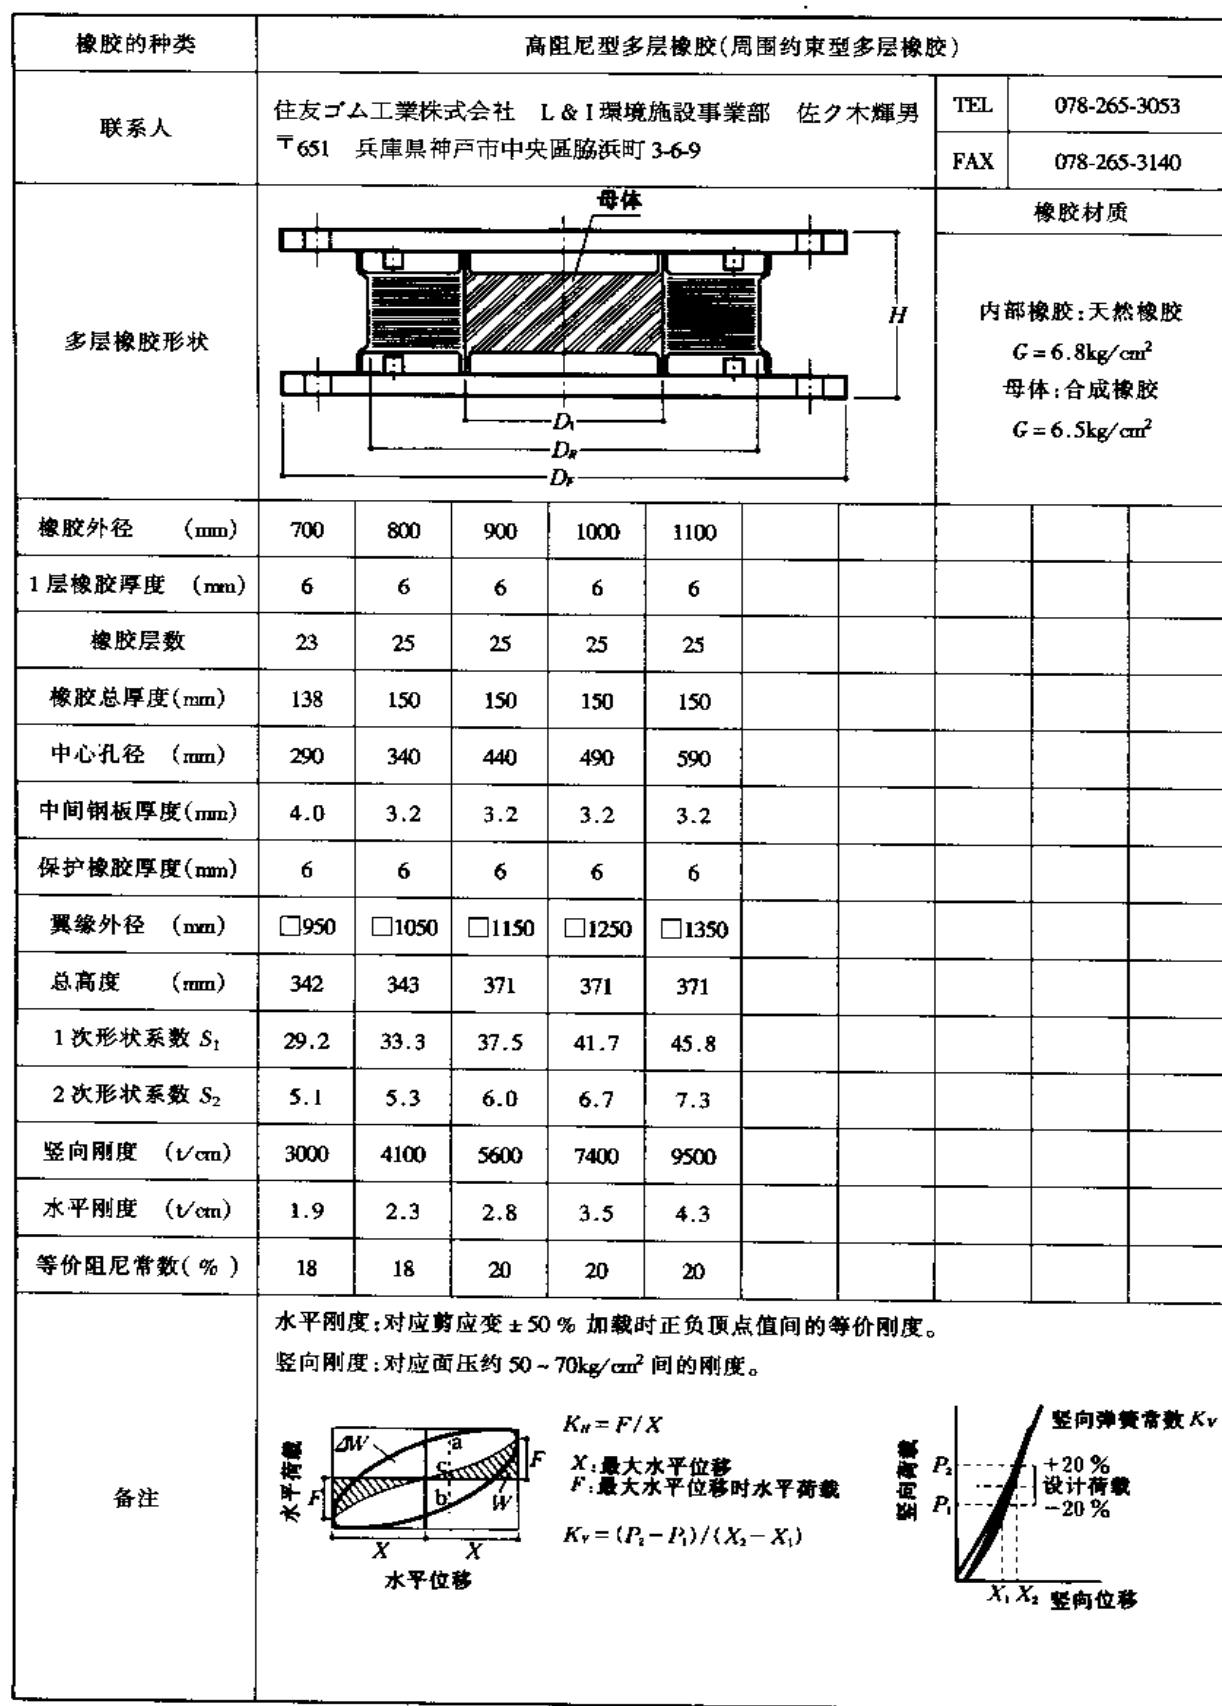 橡胶的种类 高阻尼型多层橡胶(周围约束型多层橡胶)
联系人 住友ゴム工業株式会社 L & I 環境施設事業部 佐夕木輝男 TEL 078-265-3053
〒651 兵庫県神戸市中央區脇浜町 3-6-9 FAX 078-265-3140
多层橡胶形状
母体
H
D₁
D_R
D_F
橡胶材质
内部橡胶:天然橡胶
G = 6.8kg/cm²
母体:合成橡胶
G = 6.5kg/cm²
橡胶外径 (mm) 700 800 900 1000 1100
1 层橡胶厚度 (mm) 6 6 6 6 6
橡胶层数 23 25 25 25 25
橡胶总厚度(mm) 138 150 150 150 150
中心孔径 (mm) 290 340 440 490 590
中间钢板厚度(mm) 4.0 3.2 3.2 3.2 3.2
保护橡胶厚度(mm) 6 6 6 6 6
翼缘外径 (mm) □950 □1050 □1150 □1250 □1350
总高度 (mm) 342 343 371 371 371
1 次形状系数 S₁ 29.2 33.3 37.5 41.7 45.8
2 次形状系数 S₂ 5.1 5.3 6.0 6.7 7.3
竖向刚度 (t/cm) 3000 4100 5600 7400 9500
水平刚度 (t/cm) 1.9 2.3 2.8 3.5 4.3
等价阻尼常数( % ) 18 18 20 20 20
备注
水平刚度:对应剪应变 ± 50 % 加载时正负顶点值间的等价刚度。
竖向刚度:对应面压约 50 ~ 70kg/cm² 间的刚度。
水平荷载
ΔW
a
c
b
W
F
F
X X
水平位移
K_H = F / X
X:最大水平位移
F:最大水平位移时水平荷载
K_V = (P₂ − P₁) / (X₂ − X₁)
竖向荷载
竖向弹簧常数 K_V
P₂ +20 %
设计荷载
P₁ −20 %
X₁ X₂ 竖向位移